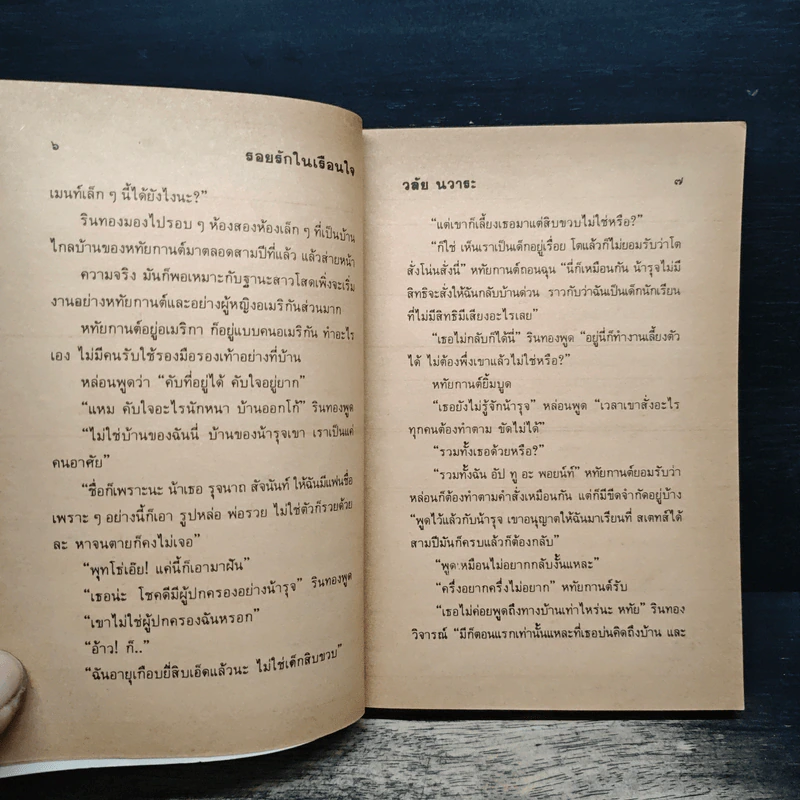 ๖
รอยรักในเรือนใจ
เมนท์เล็ก ๆ นี้ได้ยังไงนะ?”
รินทองมองไปรอบ ๆ ห้องสองห้องเล็ก ๆ ที่เป็นบ้าน
ไกลบ้านของหทัยกานต์มาตลอดสามปีที่แล้ว แล้วส่ายหน้า
ความจริง มันก็พอเหมาะกับฐานะสาวโสดเพิ่งจะเริ่ม
งานอย่างหทัยกานต์และอย่างผู้หญิงอเมริกันส่วนมาก
หทัยกานต์อยู่อเมริกา ก็อยู่แบบคนอเมริกัน ทำอะไร
เอง ไม่มีคนรับใช้รองมือรองเท้าอย่างที่บ้าน
หล่อนพูดว่า “คับที่อยู่ได้ คับใจอยู่ยาก”
“แหม คับใจอะไรนักหนา บ้านออกโก้” รินทองพูด
“ไม่ใช่บ้านของฉันนี่ บ้านของน้ารุจเขา เราเป็นแค่
คนอาศัย”
“ชื่อก็เพราะนะ น้าเธอ รุจนาถ สัจนันท์ ให้ฉันมีแฟนชื่อ
เพราะ ๆ อย่างนี้ก็เอา รูปหล่อ พ่อรวย ไม่ใช่ตัวก็รวยด้วย
ละ หาจนตายก็คงไม่เจอ”
“พุทโธ่เอ๊ย! แค่นี้ก็เอามาฝัน”
“เธอน่ะ โชคดีมีผู้ปกครองอย่างน้ารุจ” รินทองพูด
“เขาไม่ใช่ผู้ปกครองฉันหรอก”
“อ้าว! ก็..”
“ฉันอายุเกือบยี่สิบเอ็ดแล้วนะ ไม่ใช่เด็กสิบขวบ”
วลัย นวาระ
๗
“แต่เขาก็เลี้ยงเธอมาแต่สิบขวบไม่ใช่หรือ?”
“ก็ใช่ เห็นเราเป็นเด็กอยู่เรื่อย โตแล้วก็ไม่ยอมรับว่าโต
สั่งโน่นสั่งนี่” หทัยกานต์ถอนฉุน “นี่ก็เหมือนกัน น้ารุจไม่มี
สิทธิจะสั่งให้ฉันกลับบ้านด่วน ราวกับว่าฉันเป็นเด็กนักเรียน
ที่ไม่มีสิทธิมีเสียงอะไรเลย”
“เธอไม่กลับก็ได้นี่” รินทองพูด “อยู่นี่ก็ทำงานเลี้ยงตัว
ได้ ไม่ต้องพึ่งเขาแล้วไม่ใช่หรือ?”
หทัยกานต์ยิ้มบูด
“เธอยังไม่รู้จักน้ารุจ” หล่อนพูด “เวลาเขาสั่งอะไร
ทุกคนต้องทำตาม ขัดไม่ได้”
“รวมทั้งเธอด้วยหรือ?”
“รวมทั้งฉัน อัป ทู อะ พอยน์ท์” หทัยกานต์ยอมรับว่า
หล่อนก็ต้องทำตามคำสั่งเหมือนกัน แต่ก็มีขีดจำกัดอยู่บ้าง
“พูดไว้แล้วกับน้ารุจ เขาอนุญาตให้ฉันมาเรียนที่ สเตทส์ได้
สามปีมันก็ครบแล้วก็ต้องกลับ”
“พูดเหมือนไม่อยากกลับงั้นแหละ”
“ครึ่งอยากครึ่งไม่อยาก” หทัยกานต์รับ
“เธอไม่ค่อยพูดถึงทางบ้านเท่าไหร่นะ หทัย” รินทอง
วิจารณ์ “มีก็ตอนแรกเท่านั้นแหละที่เธอบ่นคิดถึงบ้าน และ